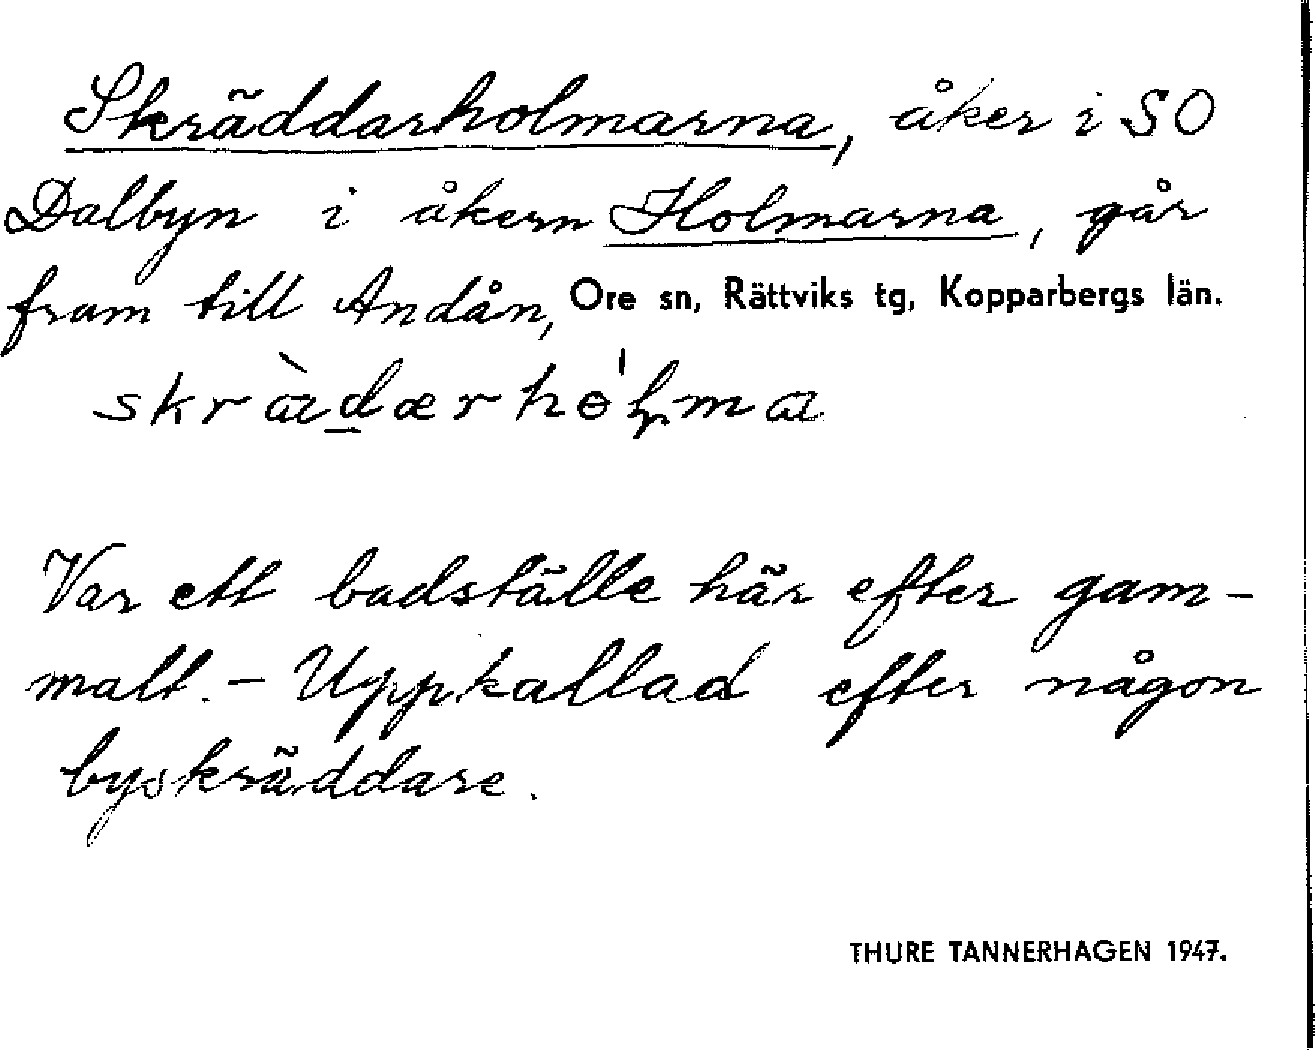 Skräddarholmarna, åker i SO
Dalbyn i åkern Holmarna, går
fram till Andån, Ore sn, Rättviks tg, Kopparbergs län.
Var ett badställe här efter gam-
malt. - Uppkallad efter någon
byskräddare.
THURE TANNERHAGEN 1947.